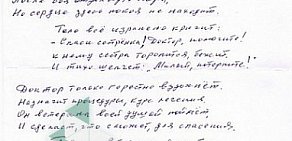 Но сердце здесь покоя не находит.
Тело всё изранено кричит:
- Спаси сестрёнка! Доктор, помогите!
К нему сестра торопится, бежит,
И тихо шепчет: "Милый, потерпите!"
Доктор только горестно вздохнёт.
Назначит процедуры, курс лечения.
Он ветерана всей душой поймёт
И сделает, что сможет, для спасения.